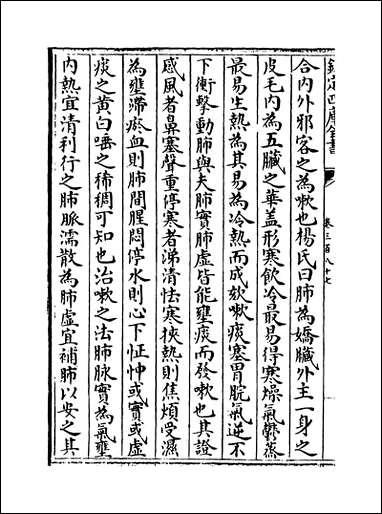 欽定四庫全書
卷三百八十七
合内外邪客之為嗽也楊氏曰肺為嬌臟外主一身之
皮毛内為五臟之華盖形寒飲冷最易得寒燥氣鬱蒸
最易生熱為其易為冷熱而成欬嗽痰塞胃脘氣逆不
下衝擊動肺與夫肺實肺虛皆能壅痰而發嗽也其證
感風者鼻塞聲重停寒者涕清怯寒挾熱則焦煩受濕
為壅滯瘀血則肺間腥悶停水則心下怔忡或實或虛
痰之黄白唾之稀稠可知也治嗽之法肺脈實為氣壅
内熱宜清利行之肺脈濡散為肺虛宜補肺以安之其